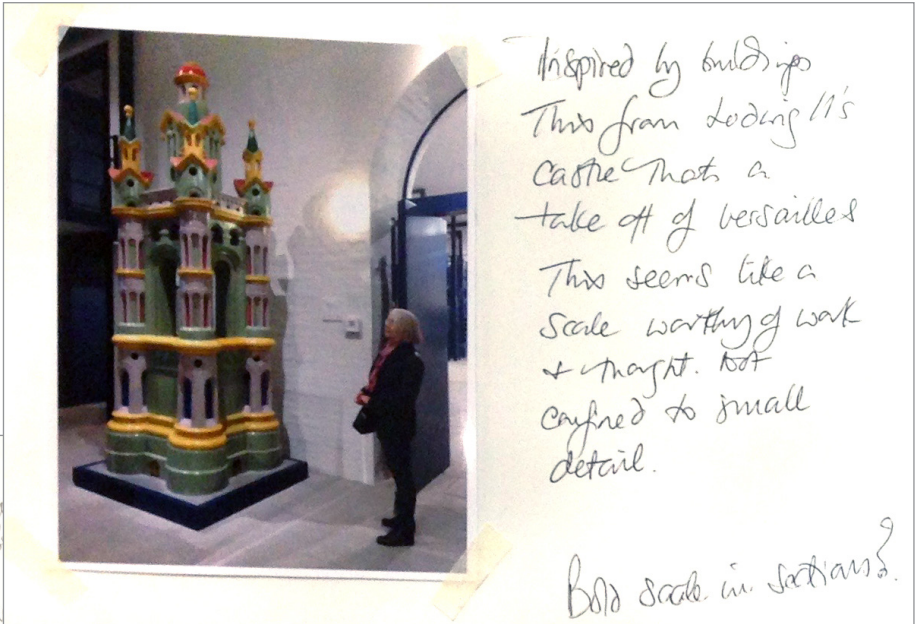 Inspired by buildings
This from Ludwig II's
castle thats a
take off of versailles
This seems like a
scale worthy of work
& thought. Not
confined to small
detail.
Bold scale in sections?